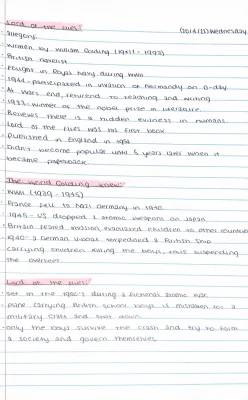 Lord of the flies (2014/23) Wednesday
Allegory
Written by William Golding (1911 - 1993)
British novelist
Fought in Royal Navy during WWII
1944 - participated in invasion of Normandy on D-day
At Wars end, returned to teaching and writing
1983: winner of the nobel prize in literature.
Reviews there is a hidden evilness in humans
Lord of the flies was his first book
Published in England in 1954
Didn't become popular until 5 years later when it
became paperback
The World Golding knew
WWII (1939 - 1945)
France fell to Nazi Germany in 1940
1945 - US dropped 2 atomic weapons on Japan
Britain feared invasion, evacuated children to other countries
1940: a German U-boat torpedoed a British Ship
carrying children killing the boys, thus suspending
the overseer
Lord of the flies
set in the 1950's during a fictional atomic war.
plane carrying British school boys is mistaken for a
military craft and shot down
only the boys survive the crash and try to form
a society and govern themselves